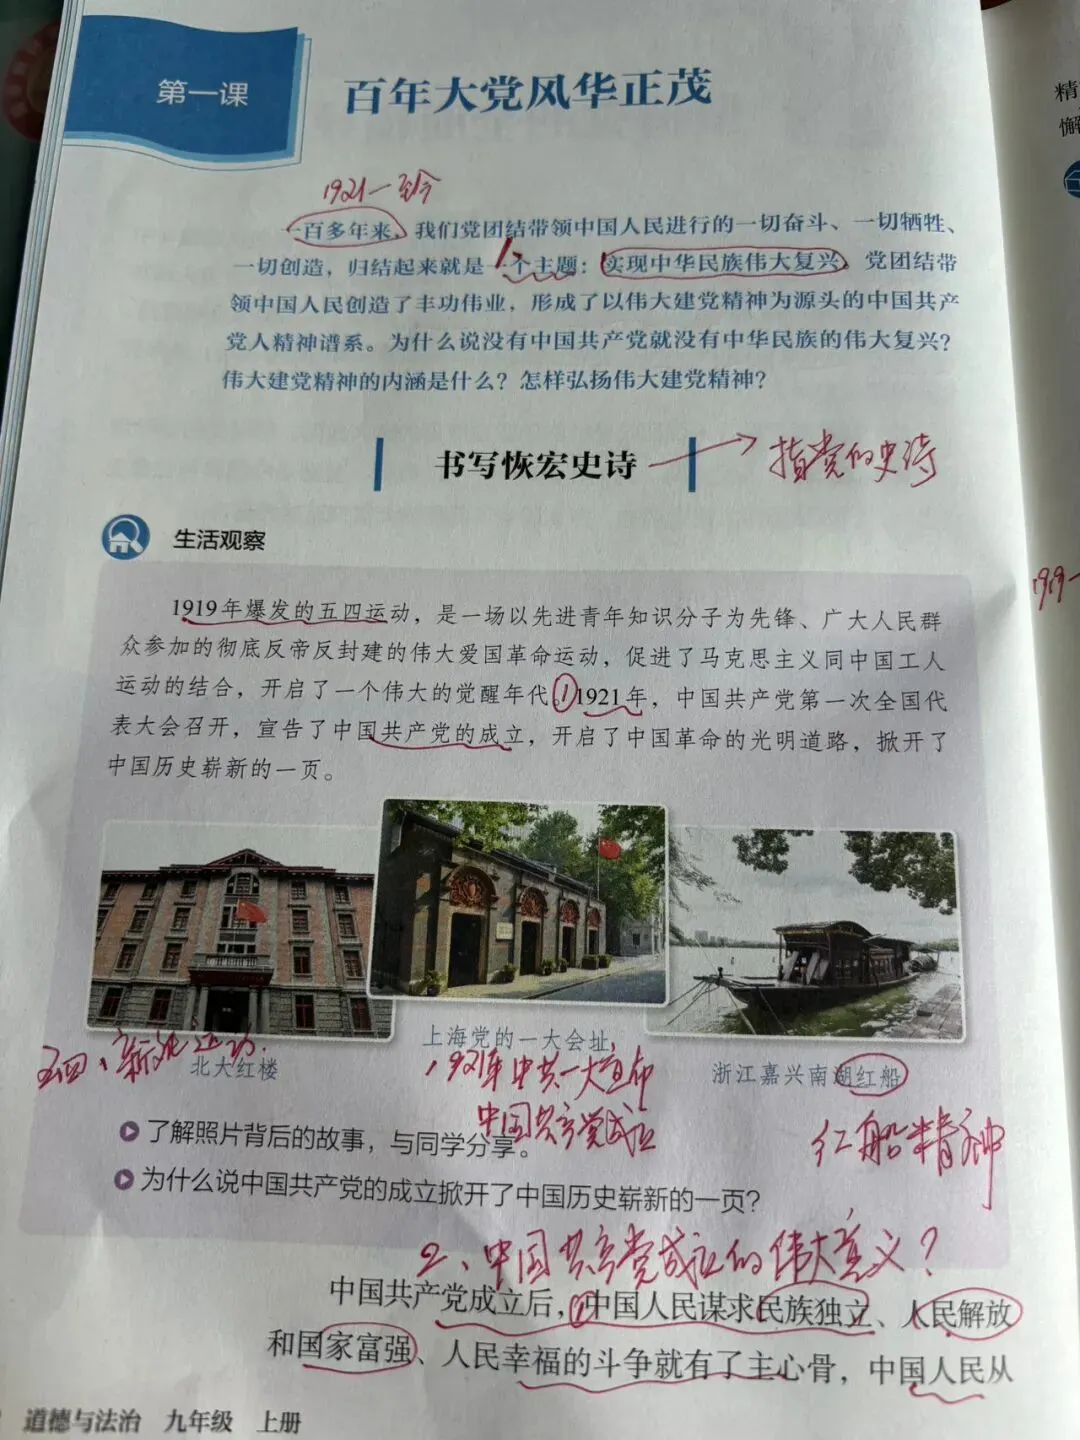 第一课
百年大党风华正茂
1921一至今
一百多年来，我们党团结带领中国人民进行的一切奋斗、一切牺牲、
一切创造，归结起来就是一个主题：实现中华民族伟大复兴。党团结带
领中国人民创造了丰功伟业，形成了以伟大建党精神为源头的中国共产
党人精神谱系。为什么说没有中国共产党就没有中华民族的伟大复兴？
伟大建党精神的内涵是什么？怎样弘扬伟大建党精神？
书写恢宏史诗
指党的史诗
生活观察
1919年爆发的五四运动，是一场以先进青年知识分子为先锋、广大人民群
众参加的彻底反帝反封建的伟大爱国革命运动，促进了马克思主义同中国工人
运动的结合，开启了一个伟大的觉醒年代。1921年，中国共产党第一次全国代
表大会召开，宣告了中国共产党的成立，开启了中国革命的光明道路，掀开了
中国历史崭新的一页。
五四、新文化运动
北大红楼
上海党的一大会址
1921年中共一大宣布
中国共产党成立
浙江嘉兴南湖红船
红船精神
了解照片背后的故事，与同学分享。
为什么说中国共产党的成立掀开了中国历史崭新的一页？
2、中国共产党成立的伟大意义？
中国共产党成立后，①中国人民谋求民族独立、人民解放
和国家富强、人民幸福的斗争就有了主心骨，中国人民从
道德与法治 九年级 上册
精
懈
1919-